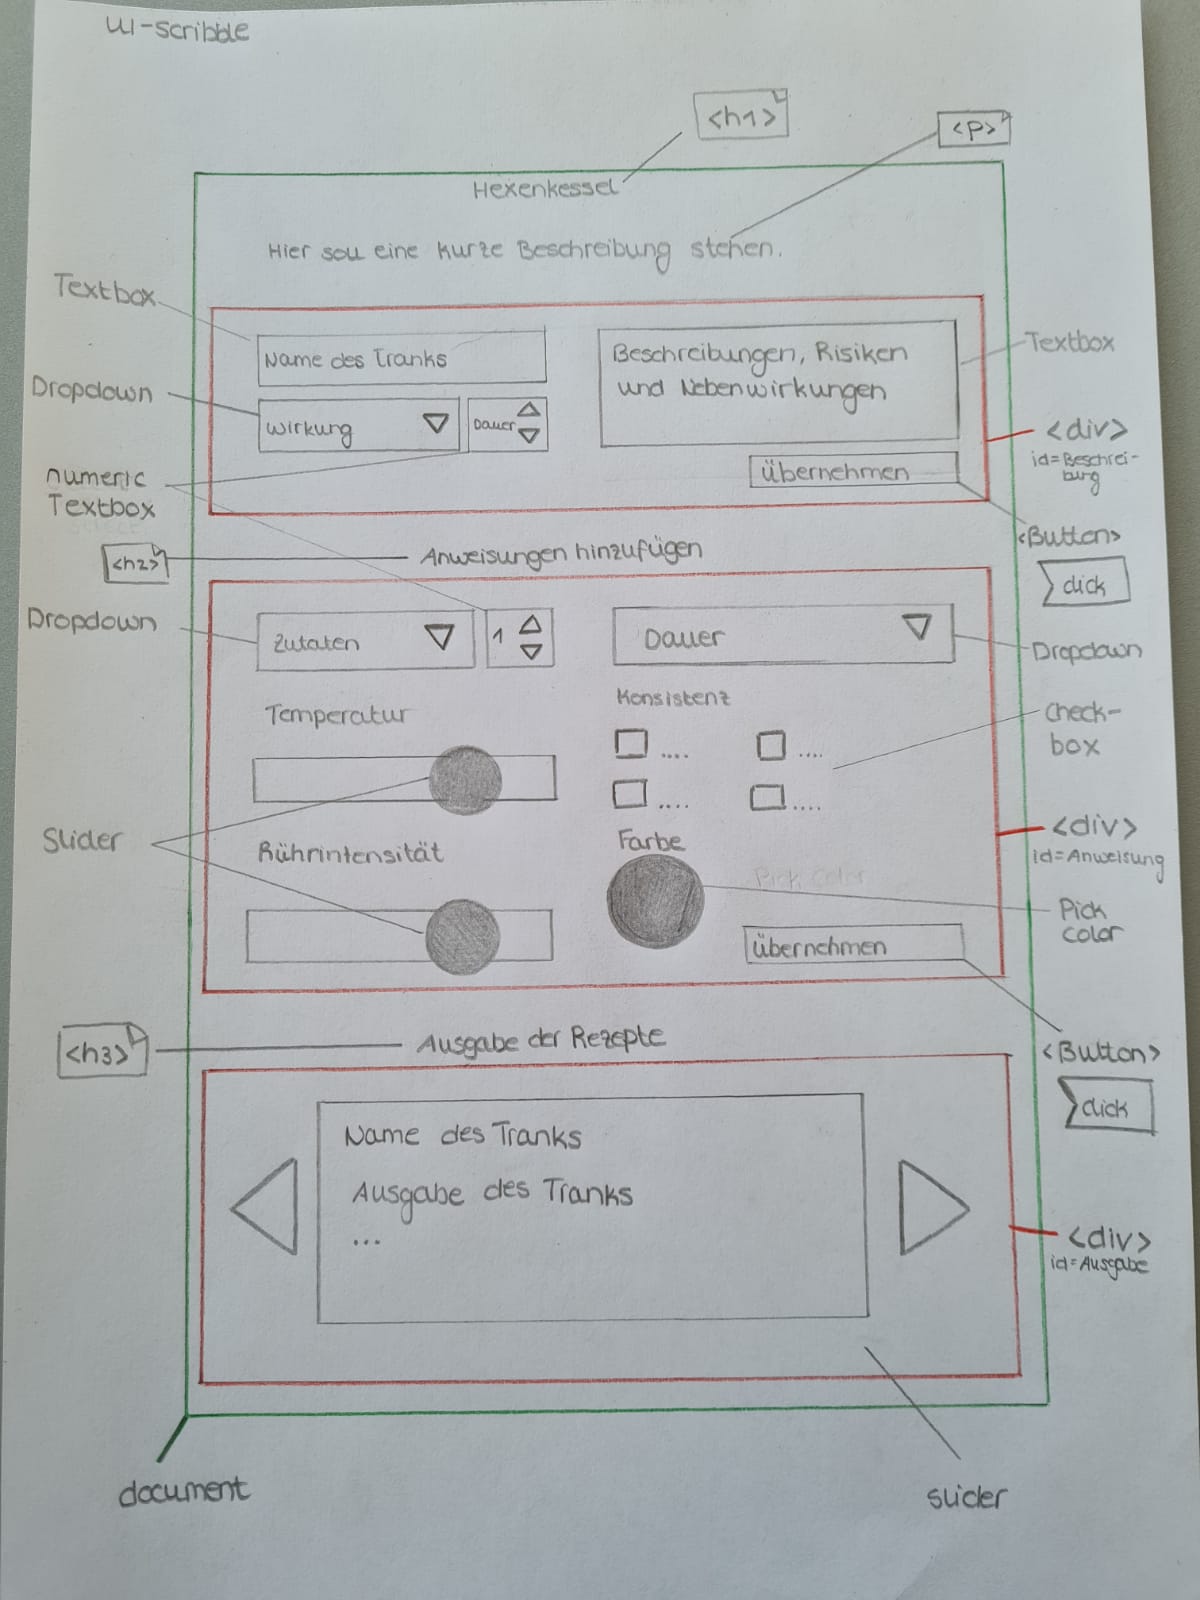 UI-scribble
<h1>
<p>
Hexenkessel
Hier soll eine kurze Beschreibung stehen.
Textbox
Name des Tranks
Beschreibungen, Risiken
und Nebenwirkungen
Textbox
Dropdown
Wirkung
Dauer
<div>
id=Beschrei-
bung
numeric
Textbox
übernehmen
<Button>
click
<h2>
Anweisungen hinzufügen
Dropdown
Zutaten
1
Dauer
Dropdown
Temperatur
Konsistenz
....
....
....
....
Check-
box
Slider
Rührintensität
Farbe
Pick Color
<div>
id=Anweisung
Pick
Color
übernehmen
<h3>
Ausgabe der Rezepte
<Button>
click
Name des Tranks
Ausgabe des Tranks
...
<div>
id=Ausgabe
document
slider